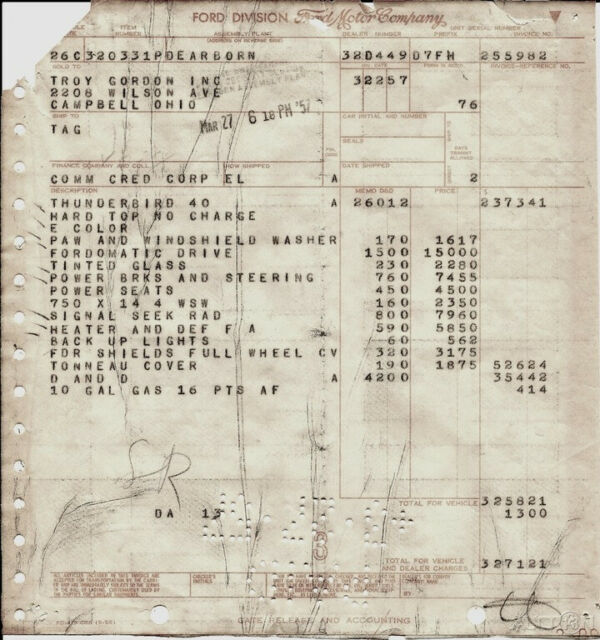 FORD DIVISION Ford Motor Company
ITEM NUMBER ASSEMBLY PLANT DEALER NUMBER PREFIX UNIT SERIAL NUMBER INVOICE NO.
(ADDRESS ON REVERSE SIDE)
26C320331P DEARBORN 32D449 D7FH 255982
SOLD TO INVOICE-REFERENCE NO.
TROY GORDON INC 32257
2208 WILSON AVE
CAMPBELL OHIO 76
MAR 27 6 18 PM '57
SHIP TO CAR INITIAL AND NUMBER
TAG
SEALS
FINANCE COMPANY AND COLL. HOW SHIPPED DATE SHIPPED
COMM CRED CORP EL A 2
DESCRIPTION MEMO D&D PRICE $
THUNDERBIRD 40 A 26012 237341
HARD TOP NO CHARGE
E COLOR
PAW AND WINDSHIELD WASHER 170 1617
FORDOMATIC DRIVE 1500 15000
TINTED GLASS 230 2280
POWER BRKS AND STEERING 760 7455
POWER SEATS 450 4500
750 X 14 4 WSW 160 2350
SIGNAL SEEK RAD 800 7960
HEATER AND DEF F A 590 5850
BACK UP LIGHTS 60 562
FDR SHIELDS FULL WHEEL CV 320 3175
TONNEAU COVER 190 1875 52624
D AND D A 4200 35442
10 GAL GAS 16 PTS AF 414
TOTAL FOR VEHICLE 325821
DA 13 1300
TOTAL FOR VEHICLE AND DEALER CHARGES 327121
GATE RELEASE AND ACCOUNTING